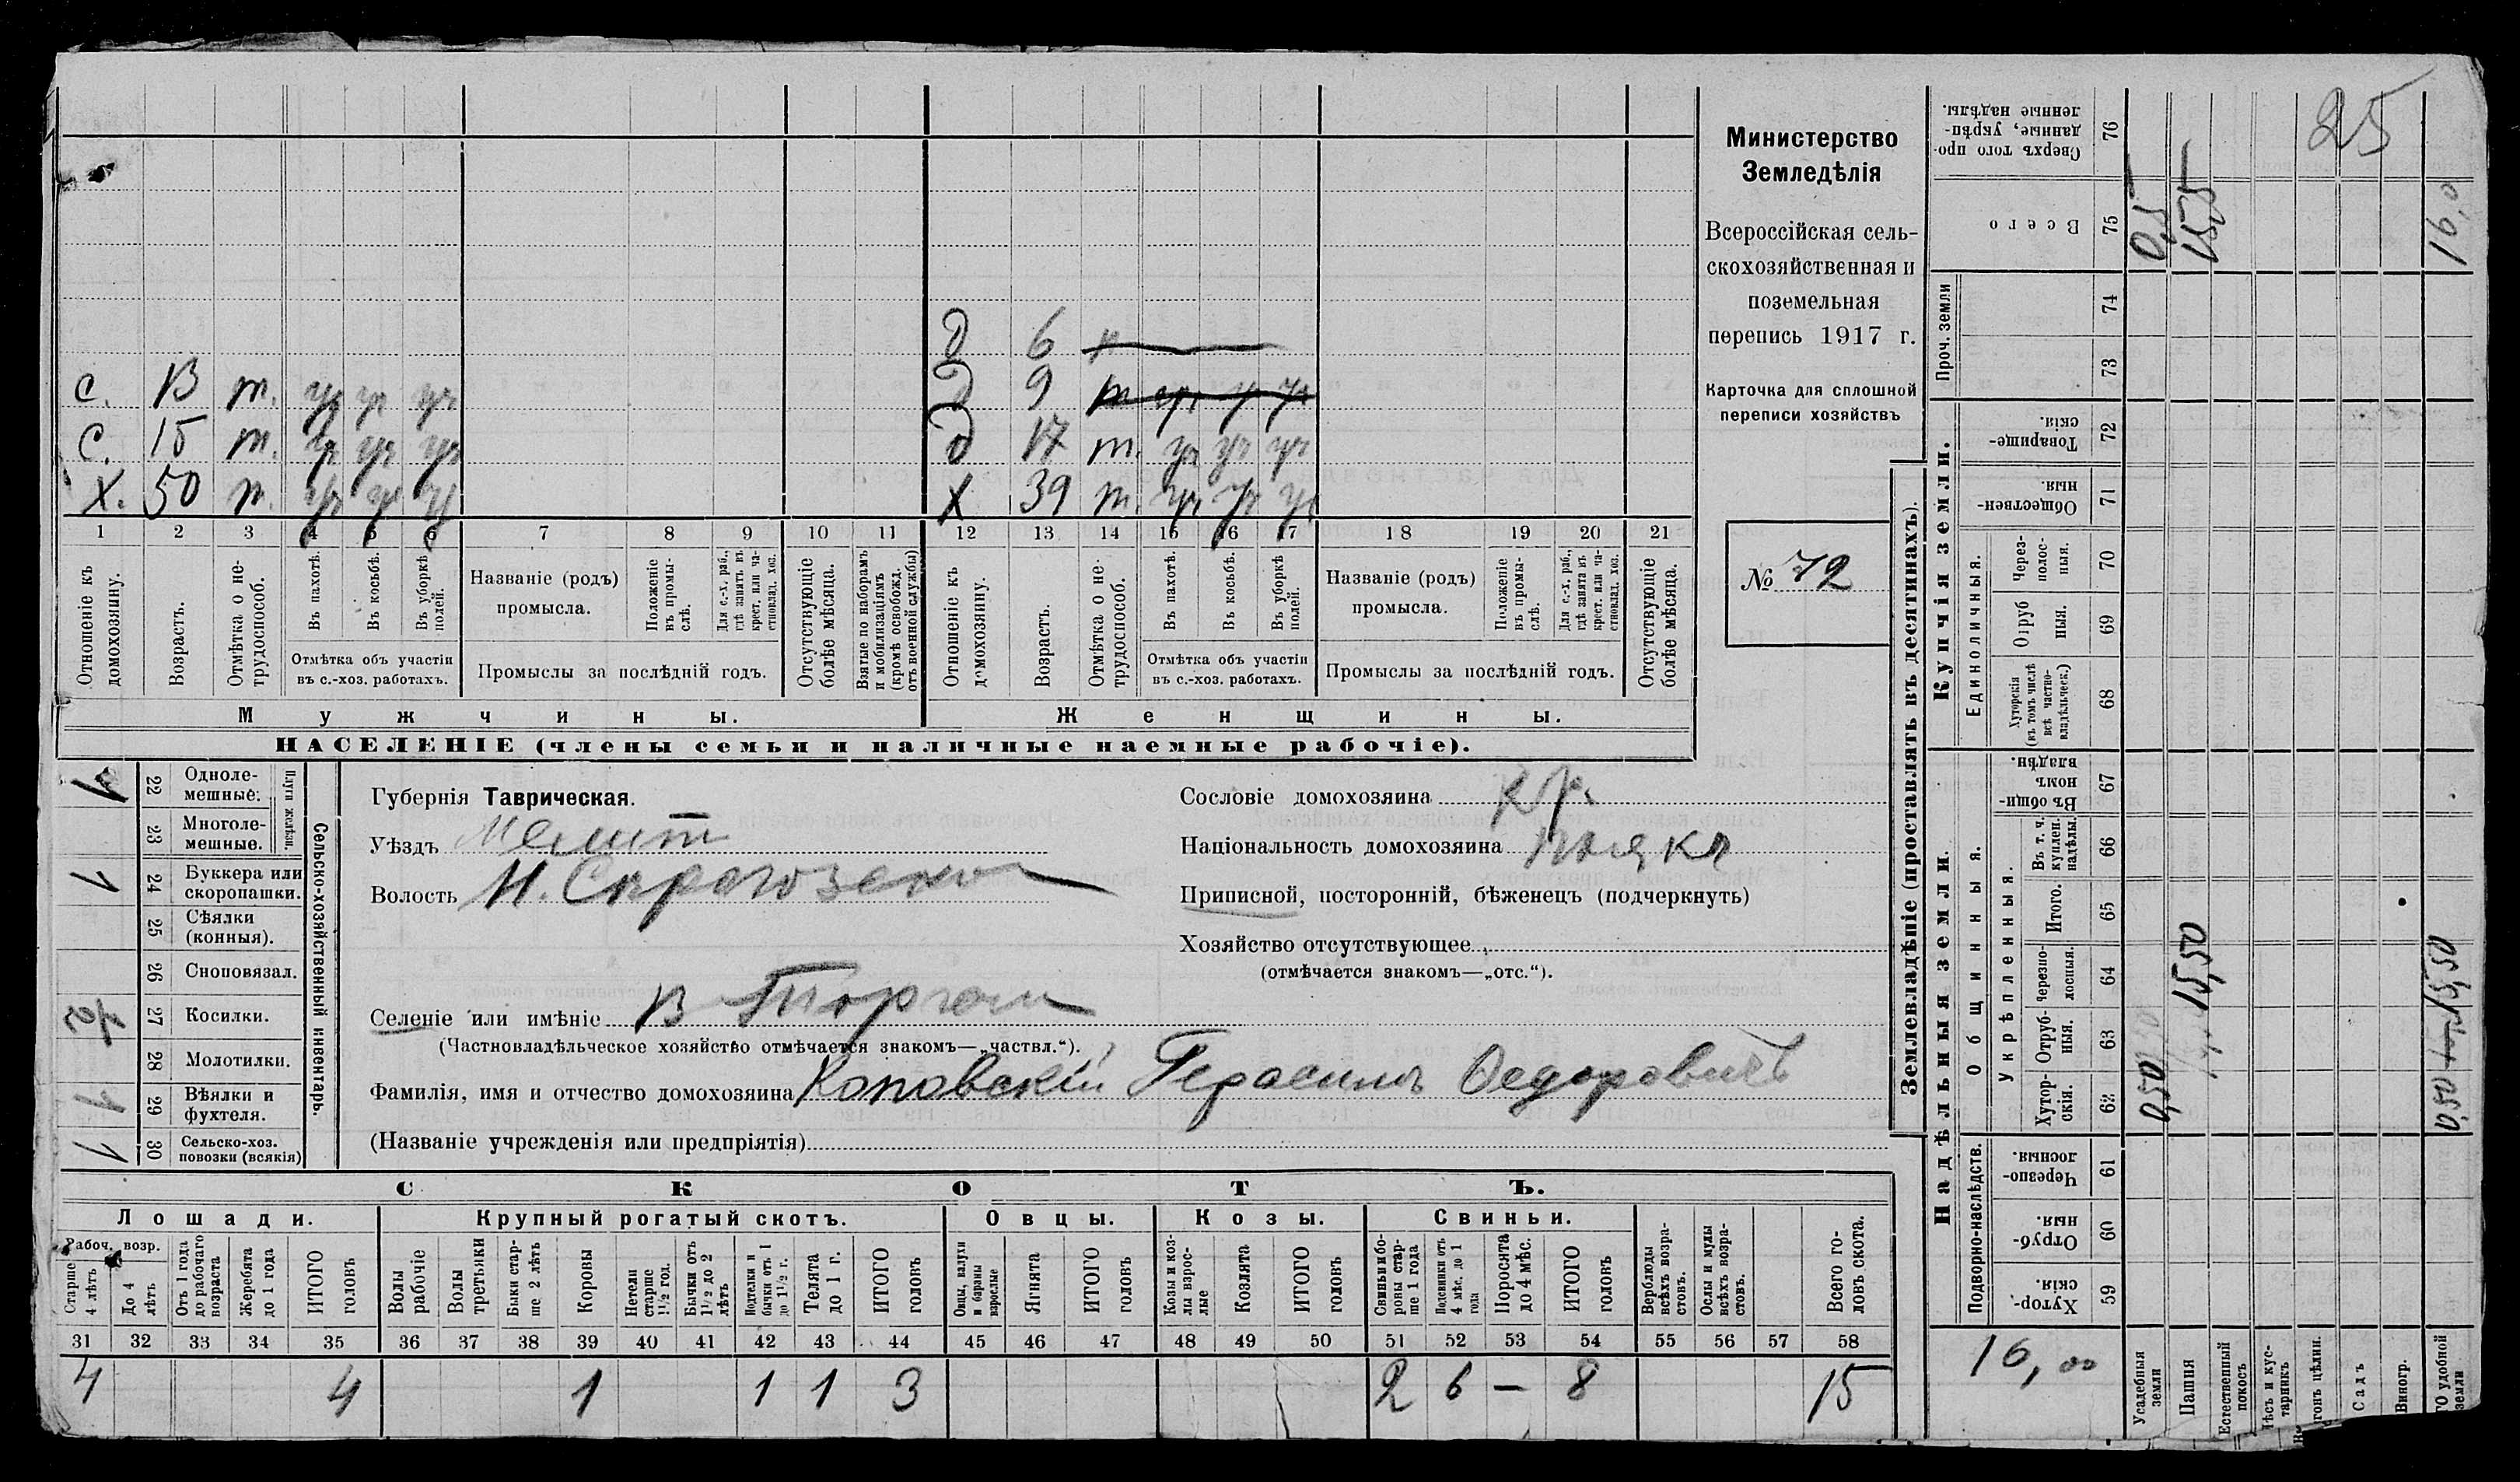 Министерство
Земледѣлія
Всероссійская сель-
скохозяйственная и
поземельная
перепись 1917 г.
Карточка для сплошной
переписи хозяйствъ
№ 72
д 6 н
с. 13 т. уч уч уч
д 9 т уч уч уч
с. 15 т. уч уч уч
д 17 т. уч уч уч
х. 50 т. уч уч уч
х 39 т. уч уч уч
1 2 3 4 5 6 7 8 9 10 11 12 13 14 15 16 17 18 19 20 21
Отношеніе къ домохозяину.
Возрастъ.
Отмѣтка о не-трудоспособ.
Въ пахотѣ.
Въ косьбѣ.
Въ уборкѣ полей.
Отмѣтка объ участіи
въ с.-хоз. работахъ.
Названіе (родъ)
промысла.
Положеніе въ промы-слѣ.
Для с.-х. раб., гдѣ занятъ въ крест. или ча-стновлад. хоз.
Промыслы за послѣдній годъ.
Отсутствующіе болѣе мѣсяца.
Взятые по наборамъ и мобилизаціямъ (кромѣ освобожд. отъ военной службы)
Отношеніе къ домохозяину.
Возрастъ.
Отмѣтка о не-трудоспособ.
Въ пахотѣ.
Въ косьбѣ.
Въ уборкѣ полей.
Отмѣтка объ участіи
въ с.-хоз. работахъ.
Названіе (родъ)
промысла.
Положеніе въ промы-слѣ.
Для с.-х. раб., гдѣ занята въ крест. или ча-стновлад. хоз.
Промыслы за послѣдній годъ.
Отсутствующіе болѣе мѣсяца.
Мужчины.
Женщины.
НАСЕЛЕНІЕ (члены семьи и наличные наемные рабочіе).
Сельско-хозяйственный инвентарь.
Плуги желѣзн.
1 22 Одноле-мешные.
23 Многоле-мешные.
1 24 Буккера или скоропашки.
25 Сѣялки (конныя).
26 Сноповязал.
27 Косилки.
28 Молотилки.
1 29 Вѣялки и фухтеля.
1 30 Сельско-хоз. повозки (всякія)
Губернія Таврическая.
Уѣздъ Мелит
Волость Н. Сѣрогозская
Селеніе или имѣніе В Торгаи
(Частновладѣльческое хозяйство отмѣчается знакомъ—„частвл.“).
Фамилія, имя и отчество домохозяина Коповскій Герасимъ Федоровичъ
(Названіе учрежденія или предпріятія)
Сословіе домохозяина кр.
Національность домохозяина
Приписной, посторонній, бѣженецъ (подчеркнуть)
Хозяйство отсутствующее
(отмѣчается знакомъ—„отс.“).
СКОТЪ.
Лошади.
Крупный рогатый скотъ.
Овцы.
Козы.
Свиньи.
Рабоч. возр.
Старше 4 лѣтъ
До 4 лѣтъ
Отъ 1 года до рабочаго возраста
Жеребята до 1 года
ИТОГО головъ
Волы рабочіе
Волы третьяки
Быки стар-ше 2 лѣтъ
Коровы
Нетели старше 1½ год.
Бычки отъ 1½ до 2 лѣтъ
Подтелки и бычки отъ 1 до 1½ г.
Телята до 1 г.
ИТОГО головъ
Овцы, валухи и бараны взрослые
Ягнята
ИТОГО головъ
Козы и коз-лы взрос-лые
Козлята
ИТОГО головъ
Свиньи и бо-ровы стар-ше 1 года
Подсвинки отъ 4 мѣс. до 1 года
Поросята до 4 мѣс.
ИТОГО головъ
Верблюды всѣхъ возра-стовъ.
Ослы и мулы всѣхъ возра-стовъ.
Всего го-ловъ скота.
31 32 33 34 35 36 37 38 39 40 41 42 43 44 45 46 47 48 49 50 51 52 53 54 55 56 57 58
4 4 1 1 1 3 2 6 — 8 15
Землевладѣніе (проставлять въ десятинахъ).
Надѣльныя земли.
Купчія земли.
Проч. земли
Сверхъ того про-данные, укрѣп-ленные надѣлы. 76
25
Всего 75 0,5 15,5 16,0
74
73
Товарище-скія 72
Обществен-ныя. 71
Единоличныя.
Через-полос-ныя. 70
Отруб ныя. 69
Хуторскія (въ томъ числѣ всѣ частно-владѣльческ.) 68
Общинныя.
Въ общи-номъ владѣн. 67
Укрѣпленныя.
Въ т. ч. куплен. надѣлы. 66
Итого. 65
Черезпо-лосныя. 64 15,50
Отруб-ныя. 63
Хутор-скія. 62 0,50
Подворно-наслѣдств.
Черезпо-лосныя. 61
Отруб-ныя. 60
Хутор-скія. 59
16,00
Усадебныя земли
Пашня
Естественный покосъ
Лѣсъ и кус-тарникъ
Садъ
Виногр.
ГО удобной земли